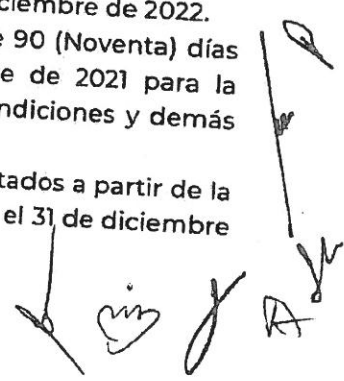 ciembre de 2022.
e 90 (Noventa) días
e de 2021 para la
ndiciones y demás
tados a partir de la
el 31 de diciembre